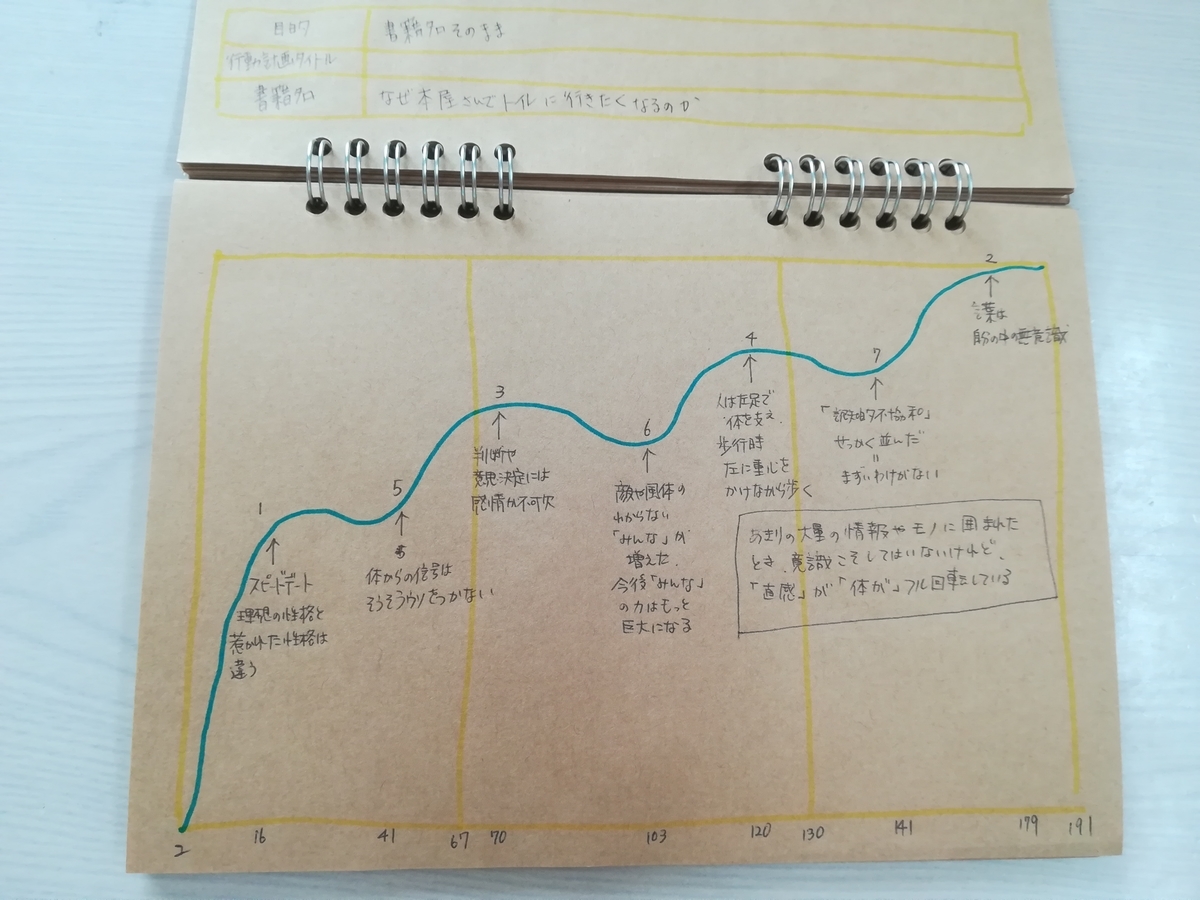 目的 書籍名そのまま
行動計画タイトル
書籍名 なぜ本屋さんでトイレに行きたくなるのか
2
言葉は
自分の中の無意識
4
人は左足で
体を支え、
歩行時
左に重心を
かけながら歩く
7
「認知的不協和」
せっかく並んだ
=
まずいわけがない
3
判断や
意思決定には
感情が不可欠
6
敵や風体の
わからない
「みんな」が
増えた。
今後「みんな」
の力はもっと
巨大になる
5
体からの信号は
そうそうウソをつかない
1
スピードデート
理想の性格と
惹かれた性格は
違う
あまりの大量の情報やモノに囲まれた
とき、意識こそしてはいないけれど、
「直感」が「体が」フル回転している
2 16 41 67 70 103 120 130 141 179 191